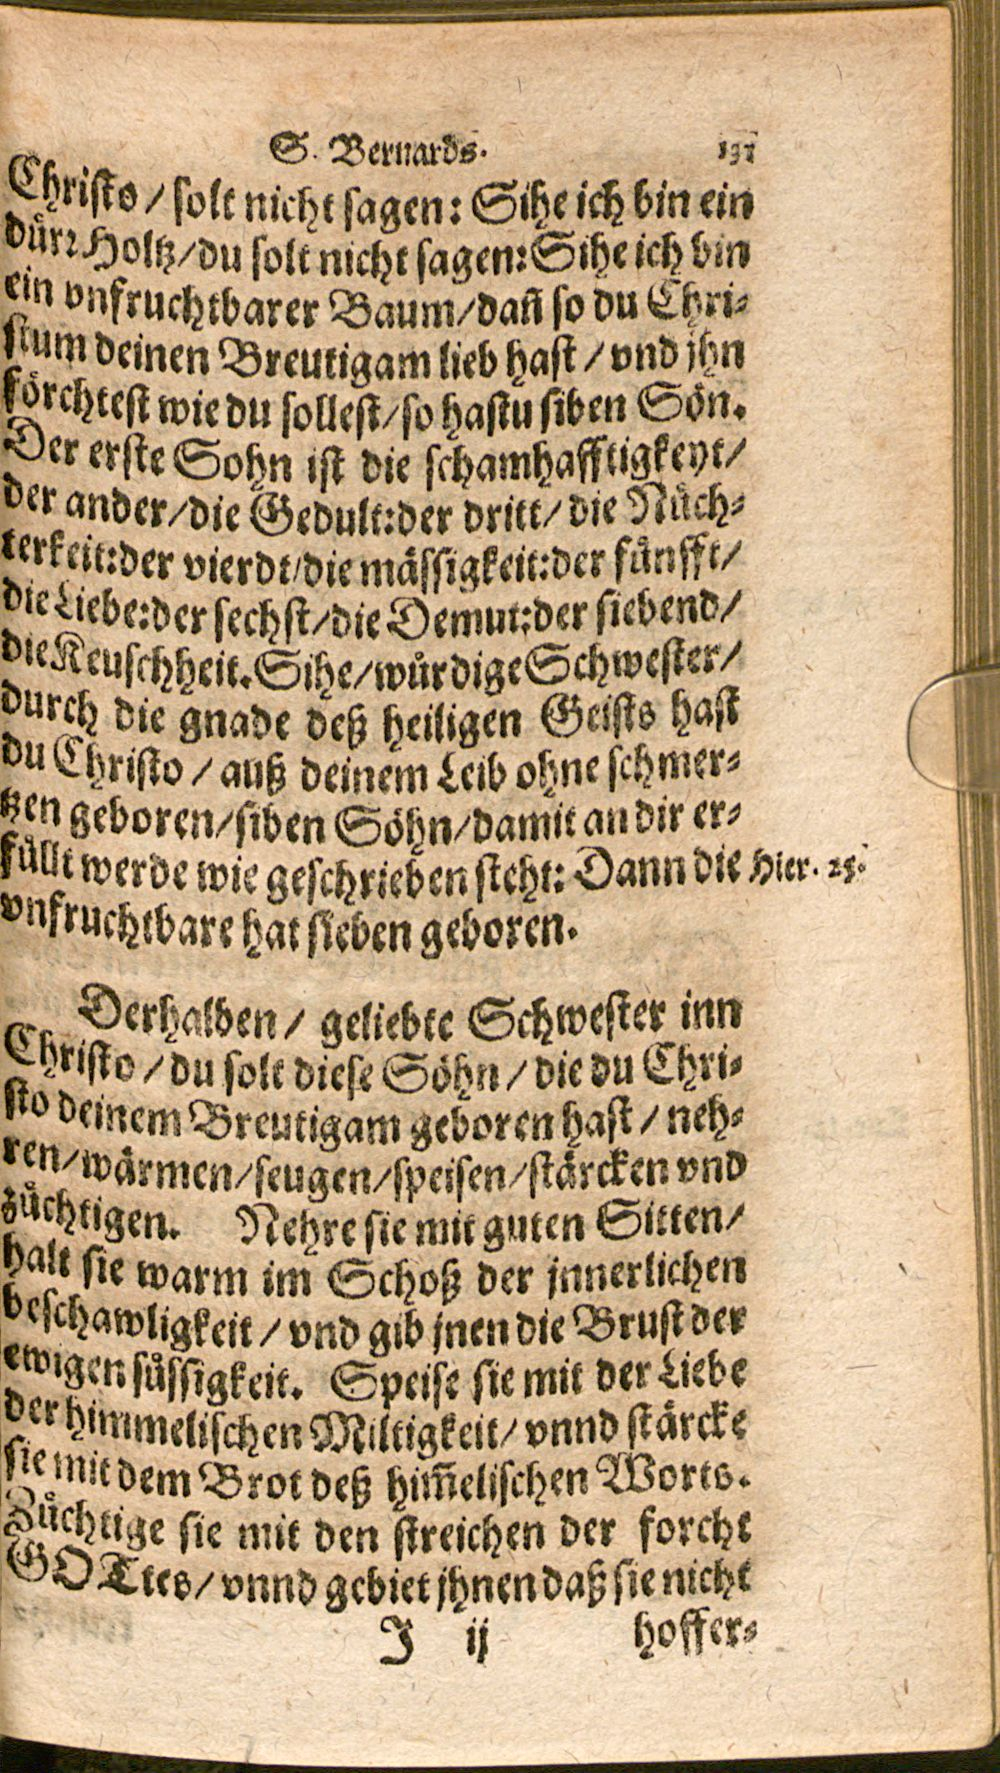 S. Bernards. 131
Christs / solt nicht sagen: Sihe ich bin ein
dürꝛ Holtz/du solt nicht sagen: Sihe ich bin
ein vnfruchtbarer Baum/dañ so du Chri-
stum deinen Breutigam lieb hast / vnd jhn
förchtest wie du sollest/so hastu siben Sön.
Der erste Sohn ist die schamhafftigkeyt/
der ander/die Gedult:der dritt/ die Nüch-
terkeit:der vierdt/die mässigkeit:der fünfft/
die Liebe:der sechst/die Demut:der siebend/
die Keuschheit. Sihe/würdige Schwester/
durch die gnade deß heiligen Geists hast
du Christo / auß deinem Leib ohne schmer-
tzen geboren/siben Söhn/damit an dir er-
füllt werde wie geschrieben steht: Dann die Hier. 25.
vnfruchtbare hat sieben geboren.
Derhalben / geliebte Schwester inn
Christo / du solt diese Söhn / die du Chri-
sto deinem Breutigam geboren hast / neh-
ren/wärmen/seugen/speisen/stärcken vnd
züchtigen. Nehre sie mit guten Sitten/
halt sie warm im Schoß der jnnerlichen
beschawligkeit / vnd gib jnen die Brust der
ewigen süssigkeit. Speise sie mit der Liebe
der himmelischen Miltigkeit/ vnnd stärcke
sie mit dem Brot deß him̃elischen Worts.
Züchtige sie mit den streichen der forcht
GOTtes/ vnnd gebiet jhnen daß sie nicht
J ij hoffer-